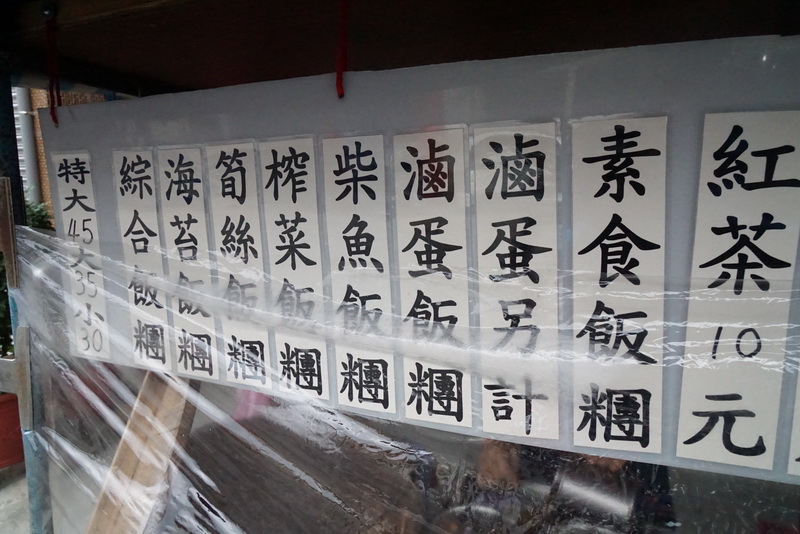 紅茶10元
素食飯糰
滷蛋另計
滷蛋飯糰
柴魚飯糰
榨菜飯糰
筍絲飯糰
海苔飯糰
綜合飯糰
特大45大35小30